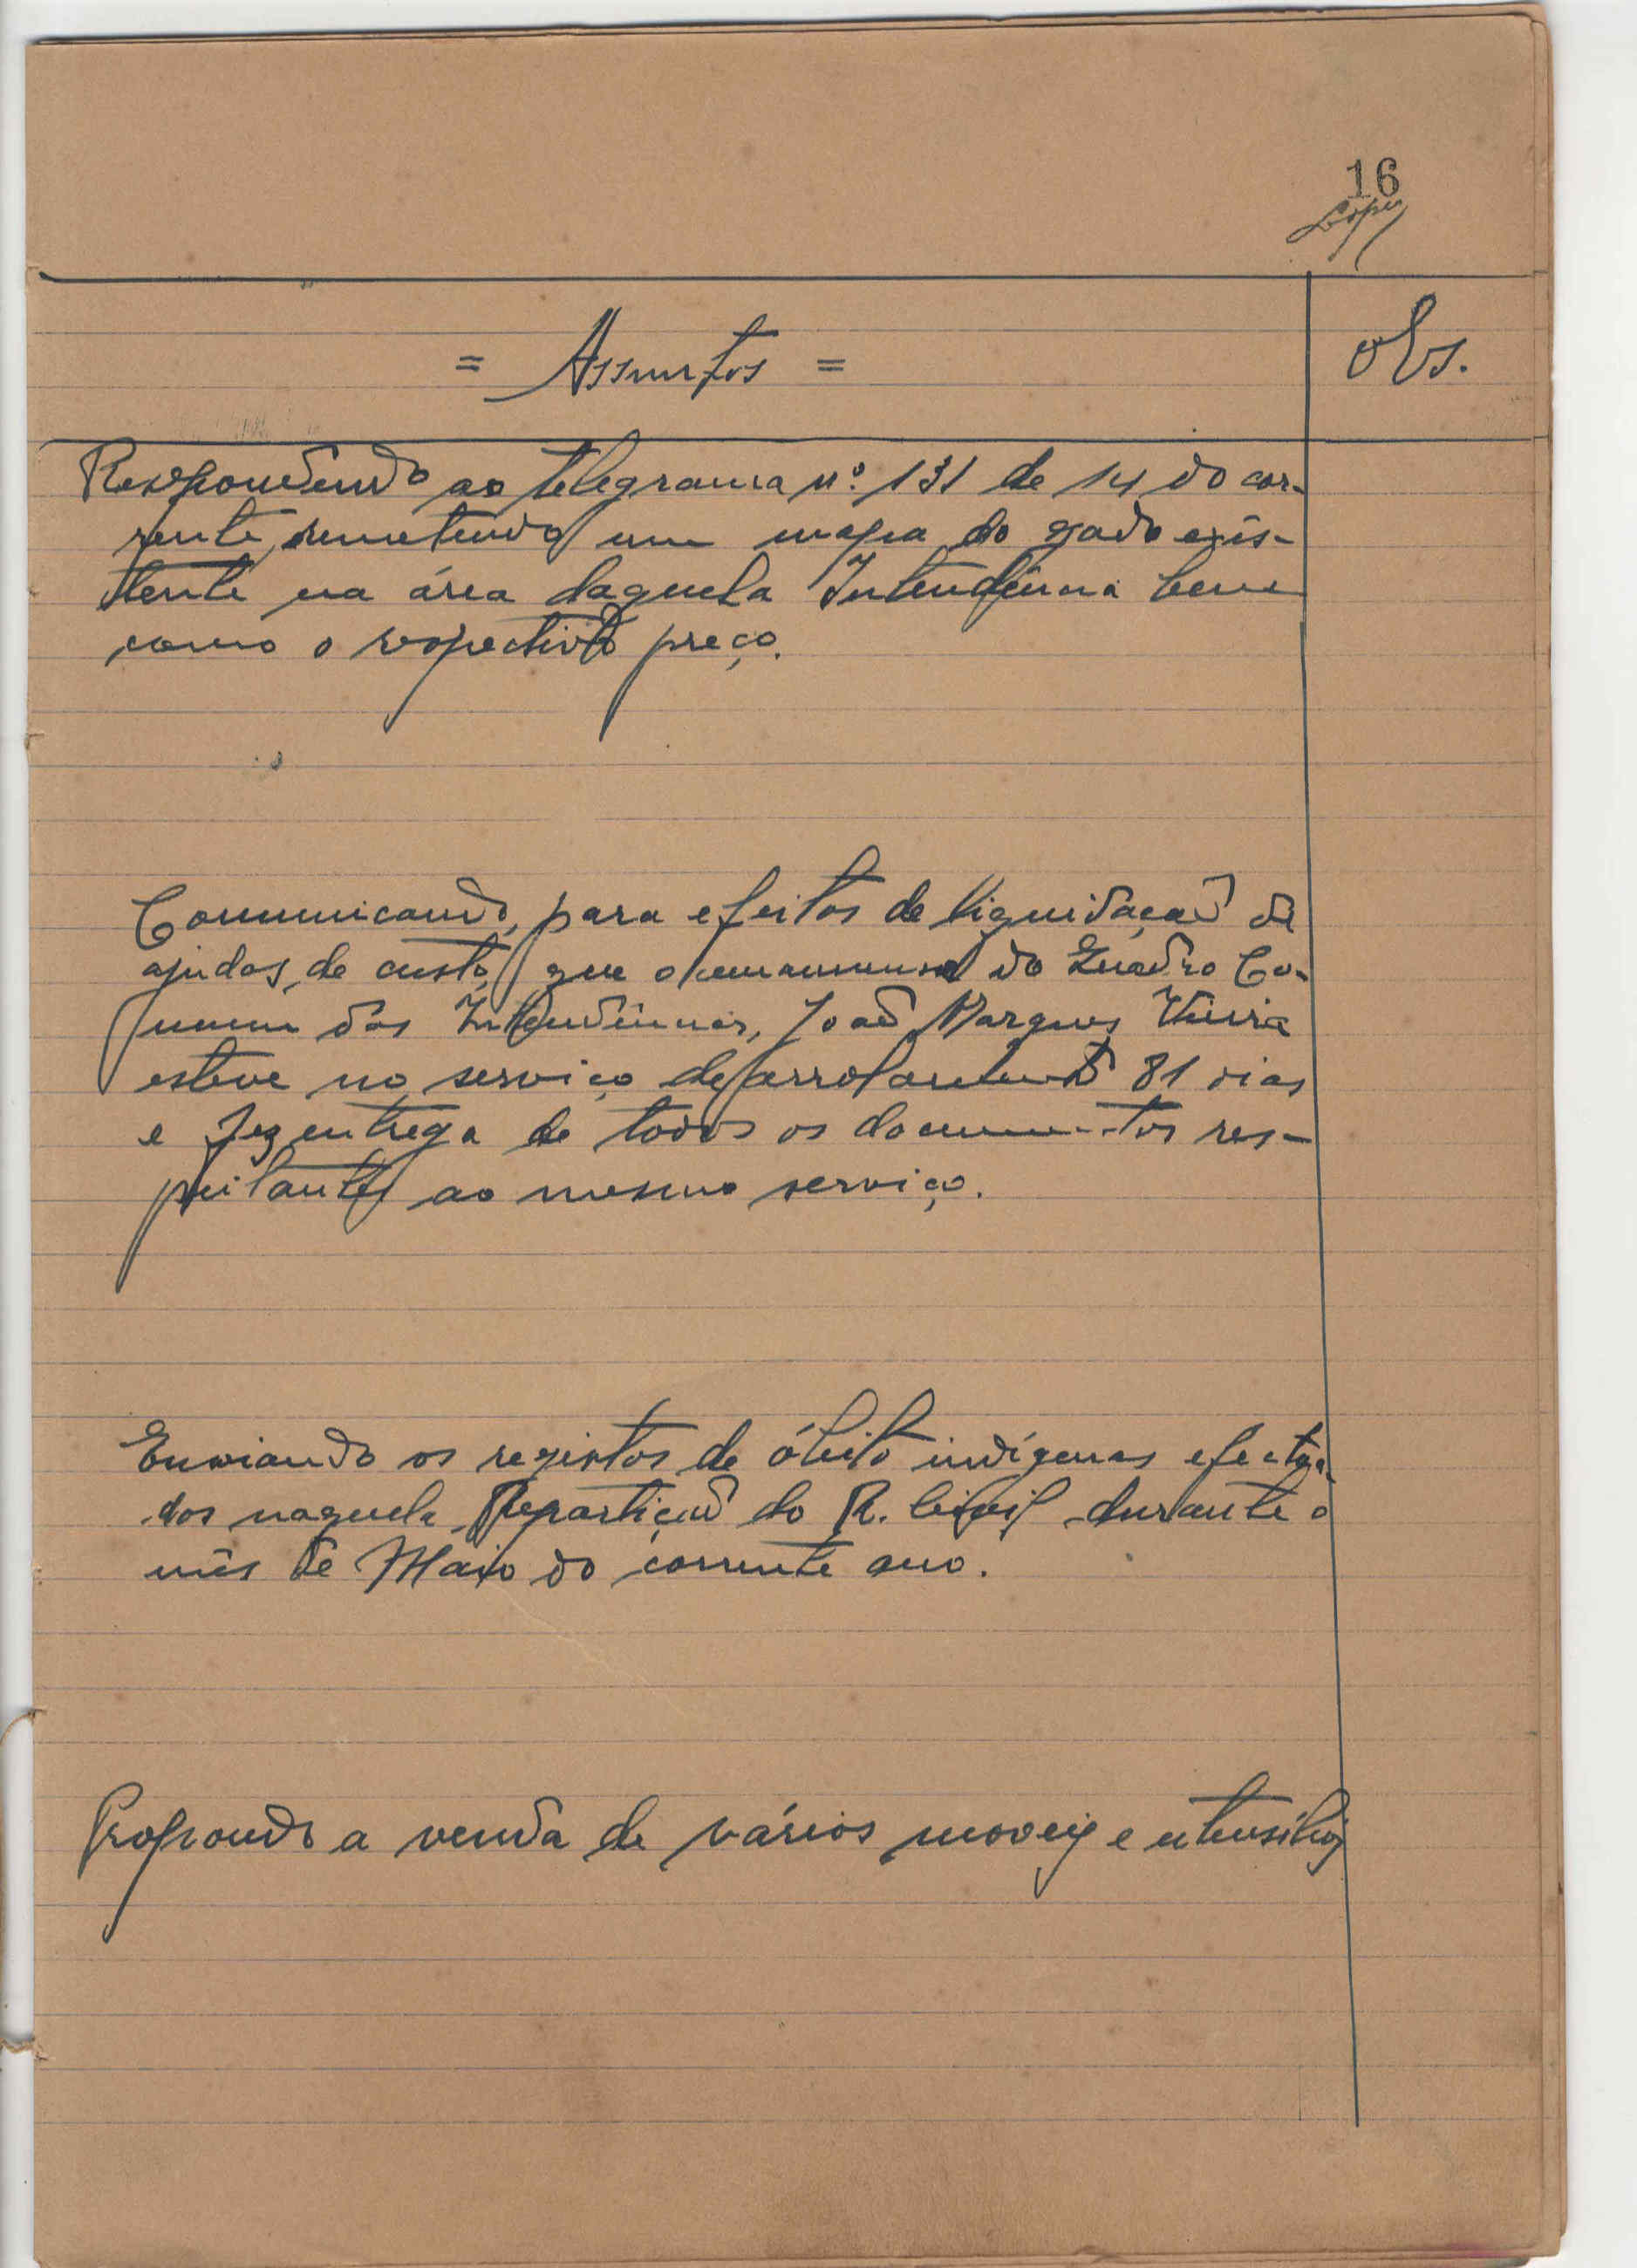 16
Lopes
= Assuntos =
obs.
Respondendo ao telegrama nº. 131 de 14 do cor-
rente, remetendo um mapa do gado exis-
tente na área daquela Intendência bem
como o respectivo preço.
Comunicando, para efeitos de liquidação de
ajudas de custo, que o amanuense do Quadro Co-
mum das Intendências, João Marques Vieira
esteve no serviço de arrolamento 81 dias
e fez entrega de todos os documentos res-
peitantes ao mesmo serviço.
Enviando os registos de óbito indígenas efectua-
dos naquela Repartição do R. Civil durante o
mês de Maio do corrente ano.
Propondo a venda de vários moveis e utensílios